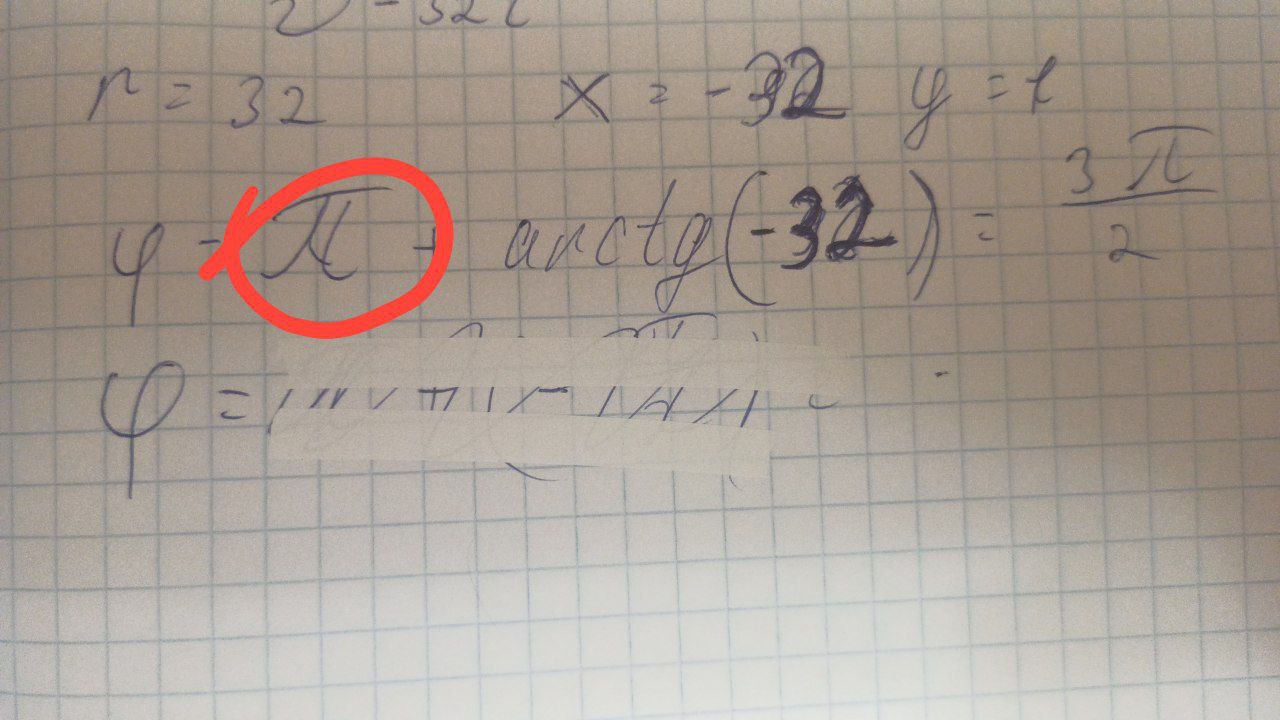 -32i
r = 32 x = -32 y = 1
φ = π + arctg(-32) = 3π/2
φ =